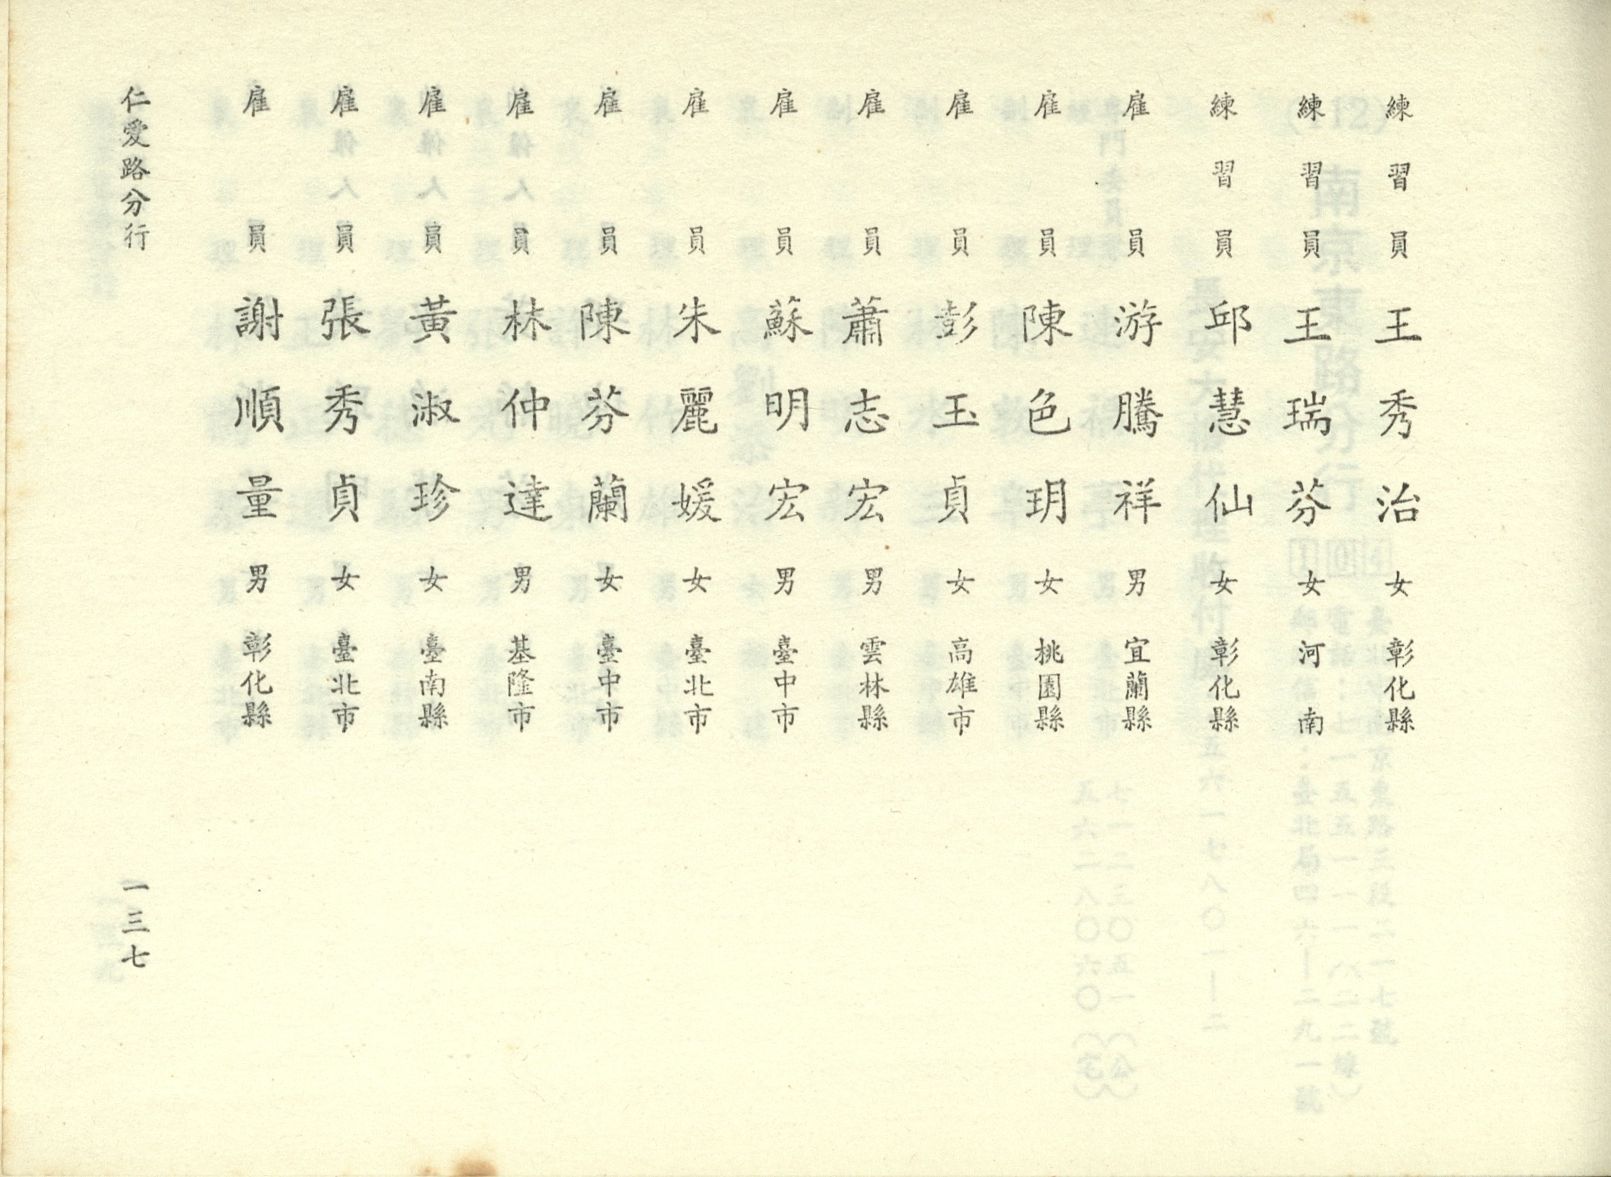 練習員 王秀治 女 彰化縣
練習員 王瑞芬 女 河南
練習員 邱慧仙 女 彰化縣
雇員 游騰祥 男 宜蘭縣
雇員 陳色玥 女 桃園縣
雇員 彭玉貞 女 高雄市
雇員 蕭志宏 男 雲林縣
雇員 蘇明宏 男 臺中市
雇員 朱麗媛 女 臺北市
雇員 陳芬蘭 女 臺中市
雇員 林仲達 男 基隆市
雇員 黃淑珍 女 臺南縣
雇員 張秀貞 女 臺北市
雇員 謝順量 男 彰化縣
仁愛路分行
一三七